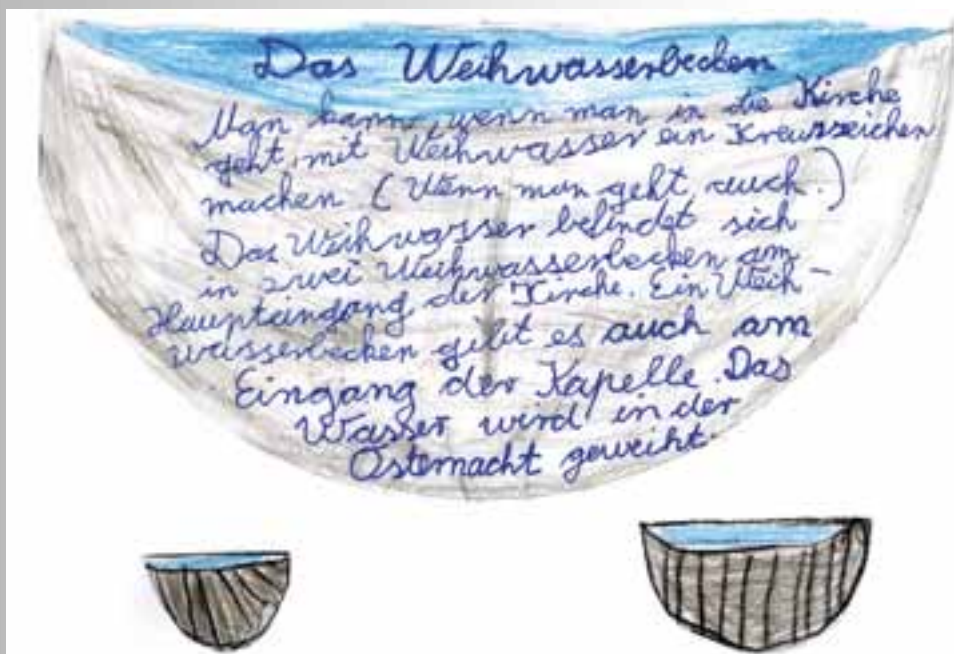 Das Weihwasserbecken
Man kann, wenn man in die Kirche
geht, mit Weihwasser ein Kreuzzeichen
machen. (Wenn man geht auch.)
Das Weihwasser befindet sich
in zwei Weihwasserbecken am
Haupteingang der Kirche. Ein Weih-
wasserbecken gibt es auch am
Eingang der Kapelle. Das
Wasser wird in der
Osternacht geweiht.